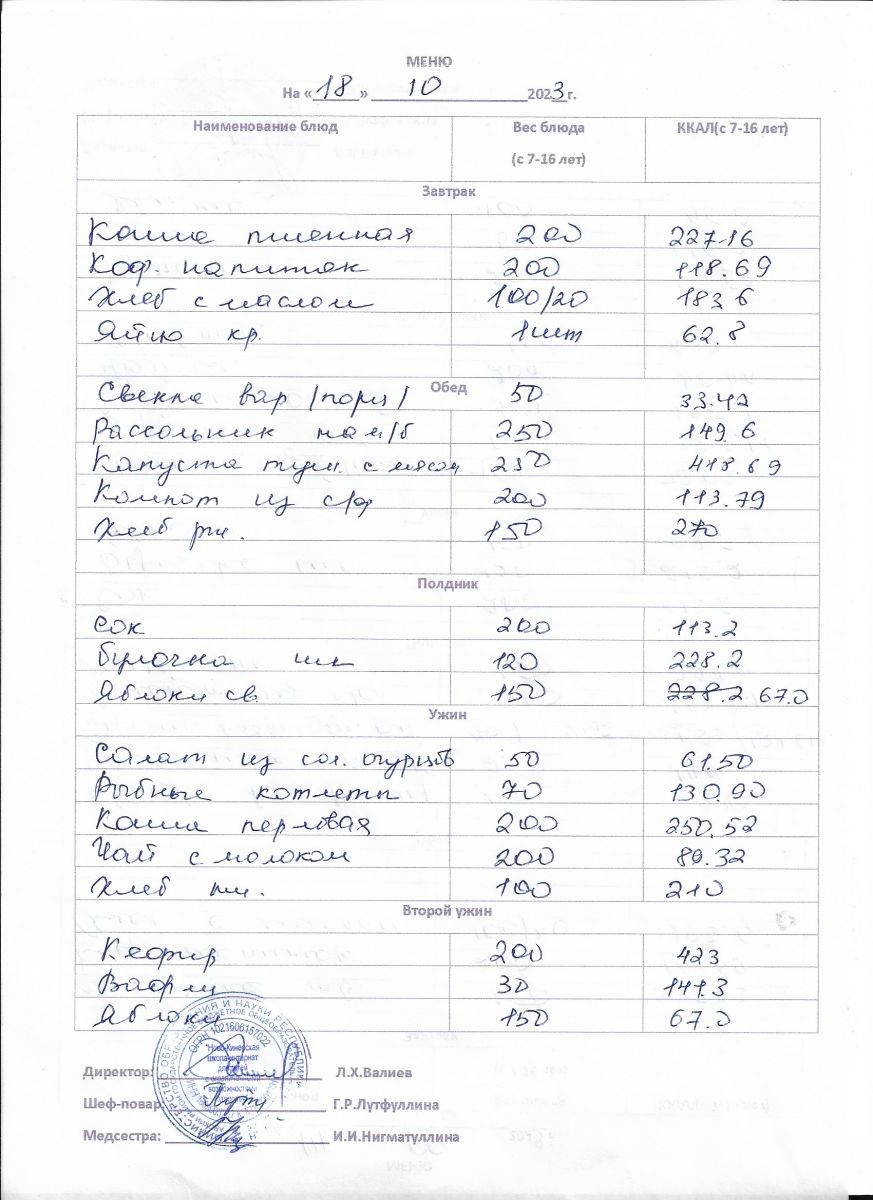 МЕНЮ
На «18» 10 2023г.
Наименование блюд Вес блюда (с 7-16 лет) ККАЛ(с 7-16 лет)
Завтрак
Каша пшенная 200 227.16
Коф. напиток 200 118.69
Хлеб с маслом 100/20 183.6
Яйцо кр. 1шт 62.8
Обед
Свекла вар /порц/ 50 33.42
Рассольник на м/б 250 149.6
Капуста туш. с мясом 250 418.69
Компот из с/ф 200 113.79
Хлеб рж. 150 270
Полдник
Сок 200 113.2
Булочка шк 120 228.2
Яблоки св. 150 228.2 67.0
Ужин
Салат из сол. огурцов 50 61.50
Рыбные котлеты 70 130.90
Каша перловая 200 250.52
Чай с молоком 200 89.32
Хлеб пш. 100 210
Второй ужин
Кефир 200 423
Вафли 30 141.3
Яблоки 150 67.0
ОГРН 1021606157022
"Ново-Кинерская
школа-интернат
Директор: Л.Х.Валиев
Шеф-повар: Г.Р.Лутфуллина
Медсестра: И.И.Нигматуллина